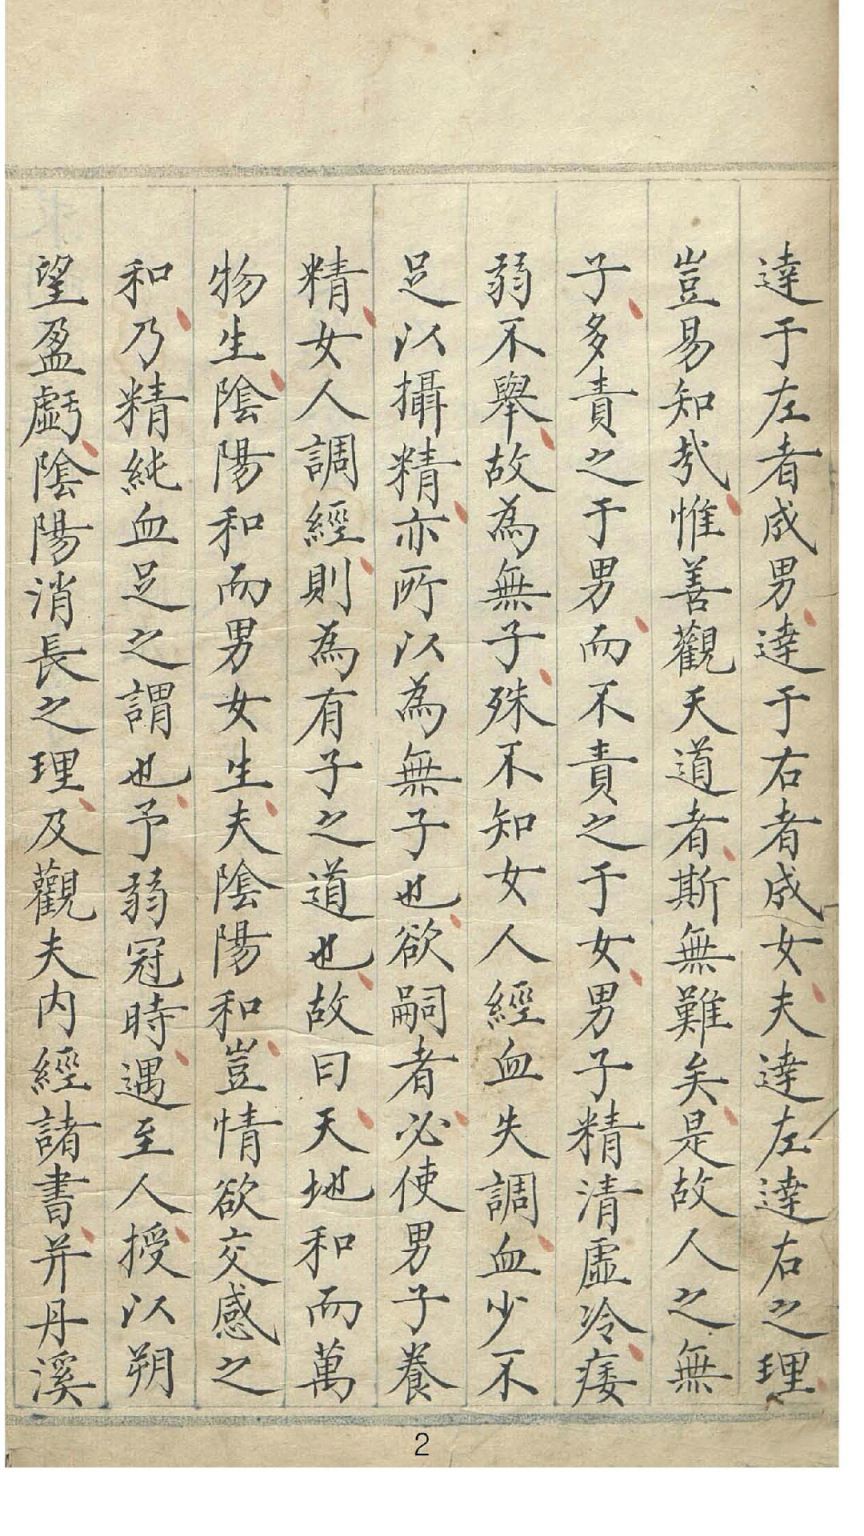 達于左者成男達于右者成女夫達左達右之理
豈易知哉惟善觀天道者斯無難矣是故人之無
子多責之于男而不責之于女男子精清虛冷痿
弱不舉故為無子殊不知女人經血失調血少不
足以攝精亦所以為無子也欲嗣者必使男子養
精女人調經則為有子之道也故曰天地和而萬
物生陰陽和而男女生夫陰陽和豈情欲交感之
和乃精純血足之謂也予弱冠時遇至人授以朔
望盈虧陰陽消長之理及觀夫内經諸書并丹溪
2